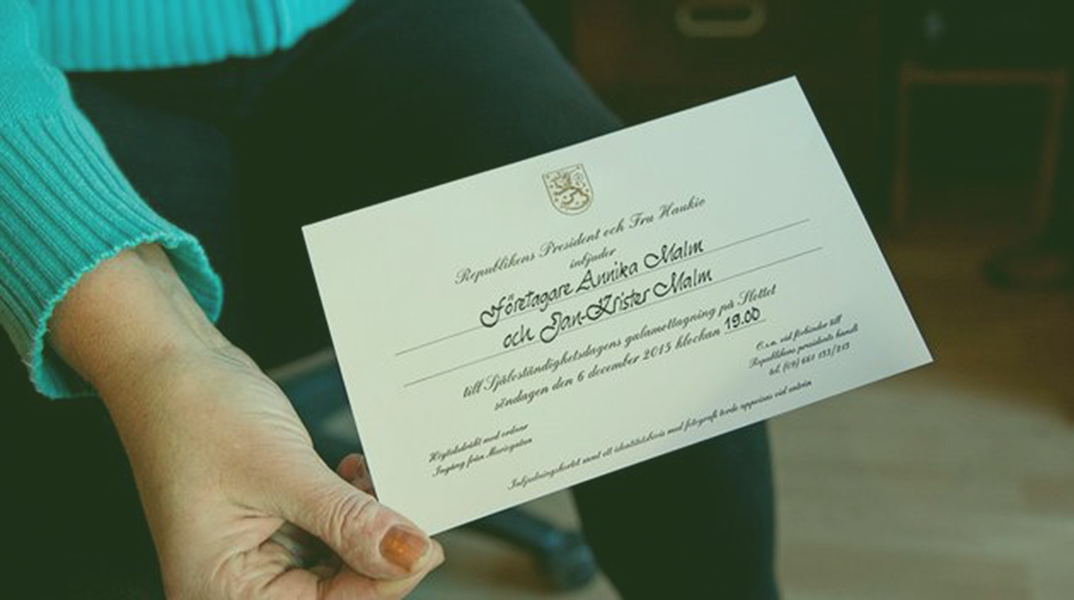 Republikens President och Fru Haukio
inbjuder
Företagare Annika Malm
och Jan-Krister Malm
till Självständighetsdagens galamottagning på Slottet
söndagen den 6 december 2015 klockan 19.00
O.s.a. vid förhinder till
Republikens presidents kansli
tel. (09) 661 133/213
Högtidsdräkt med ordnar
Ingång från Mariegatan
Inbjudningskortet samt ett identitetsbevis med fotografi torde uppvisas vid entrén